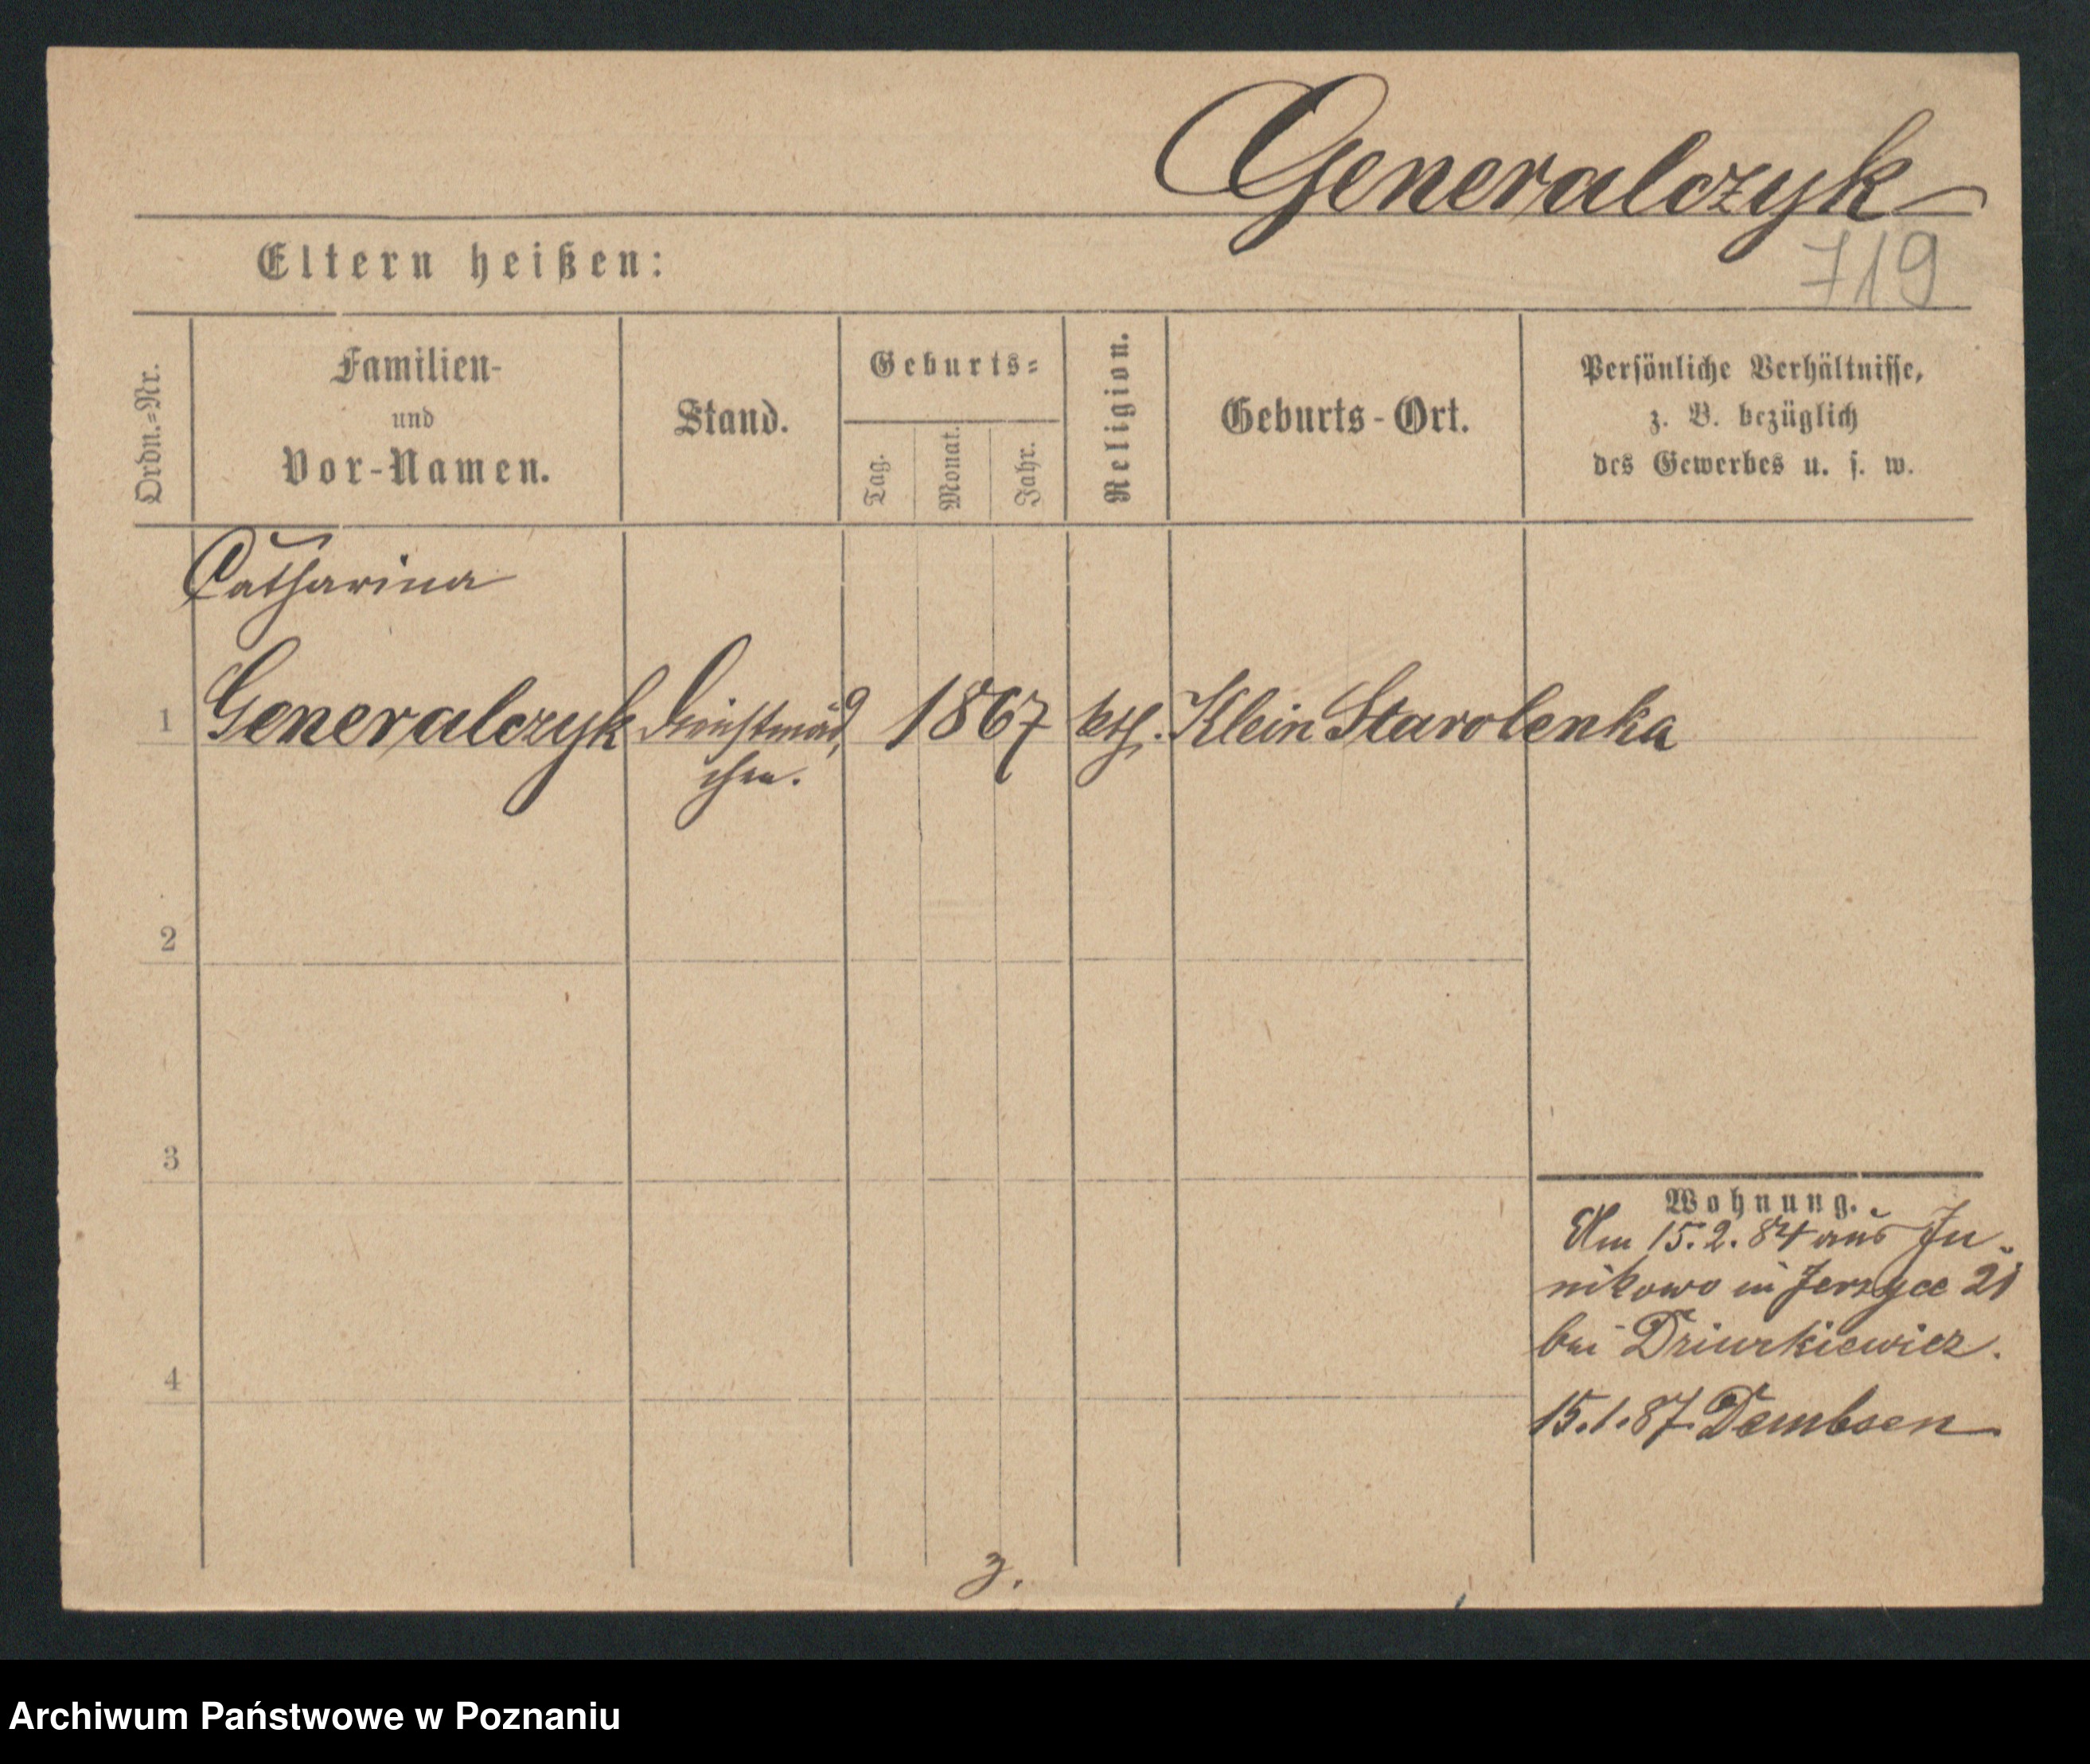 Generalczyk
719
Eltern heißen:
Ordn.=Nr.
Familien-
und
Vor-Namen.
Stand.
Geburts=
Tag.
Monat.
Jahr.
Religion.
Geburts-Ort.
Persönliche Verhältnisse,
z. B. bezüglich
des Gewerbes u. s. w.
Catharina
1 Generalczyk Dienstmäd, 1867 kth. Klein Starolenka
chen.
2
3
Wohnung.
Am 15.2.84 aus Ju-
nikowo in Jerzyce 21
bei Dziurkiewicz.
4
15.1.87. Dembsen
z.
Archiwum Państwowe w Poznaniu